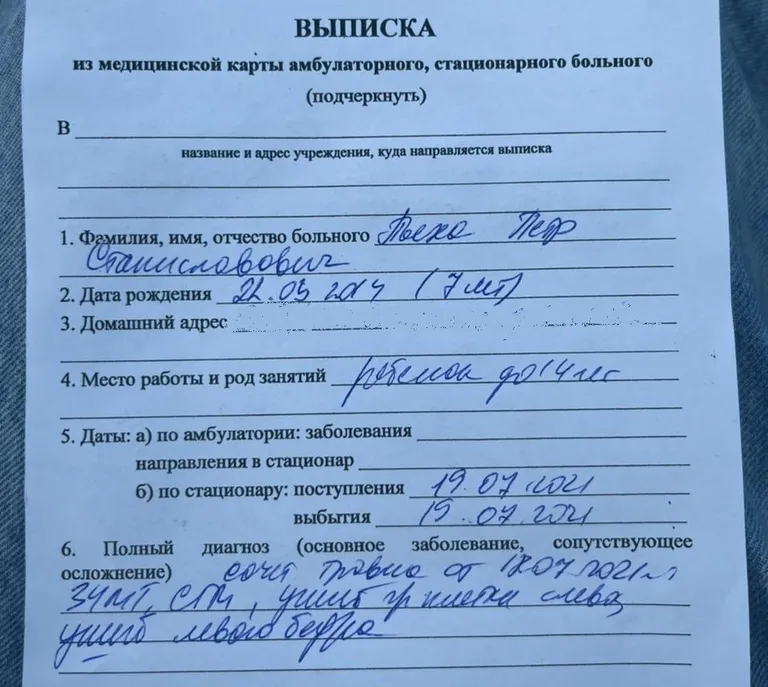 ВЫПИСКА
из медицинской карты амбулаторного, стационарного больного
(подчеркнуть)
В
название и адрес учреждения, куда направляется выписка
1. Фамилия, имя, отчество больного Пьеха Петр
Станиславович
2. Дата рождения 22.03.2014 (7 лет)
3. Домашний адрес
4. Место работы и род занятий ребенок до 14 лет
5. Даты: а) по амбулатории: заболевания
направления в стационар
б) по стационару: поступления 19.07.2021
выбытия 19.07.2021
6. Полный диагноз (основное заболевание, сопутствующее
осложнение) сочет травма от 07 2021г
ЗЧМТ, СГМ, ушиб гр клетки слева,
ушиб левого бедра